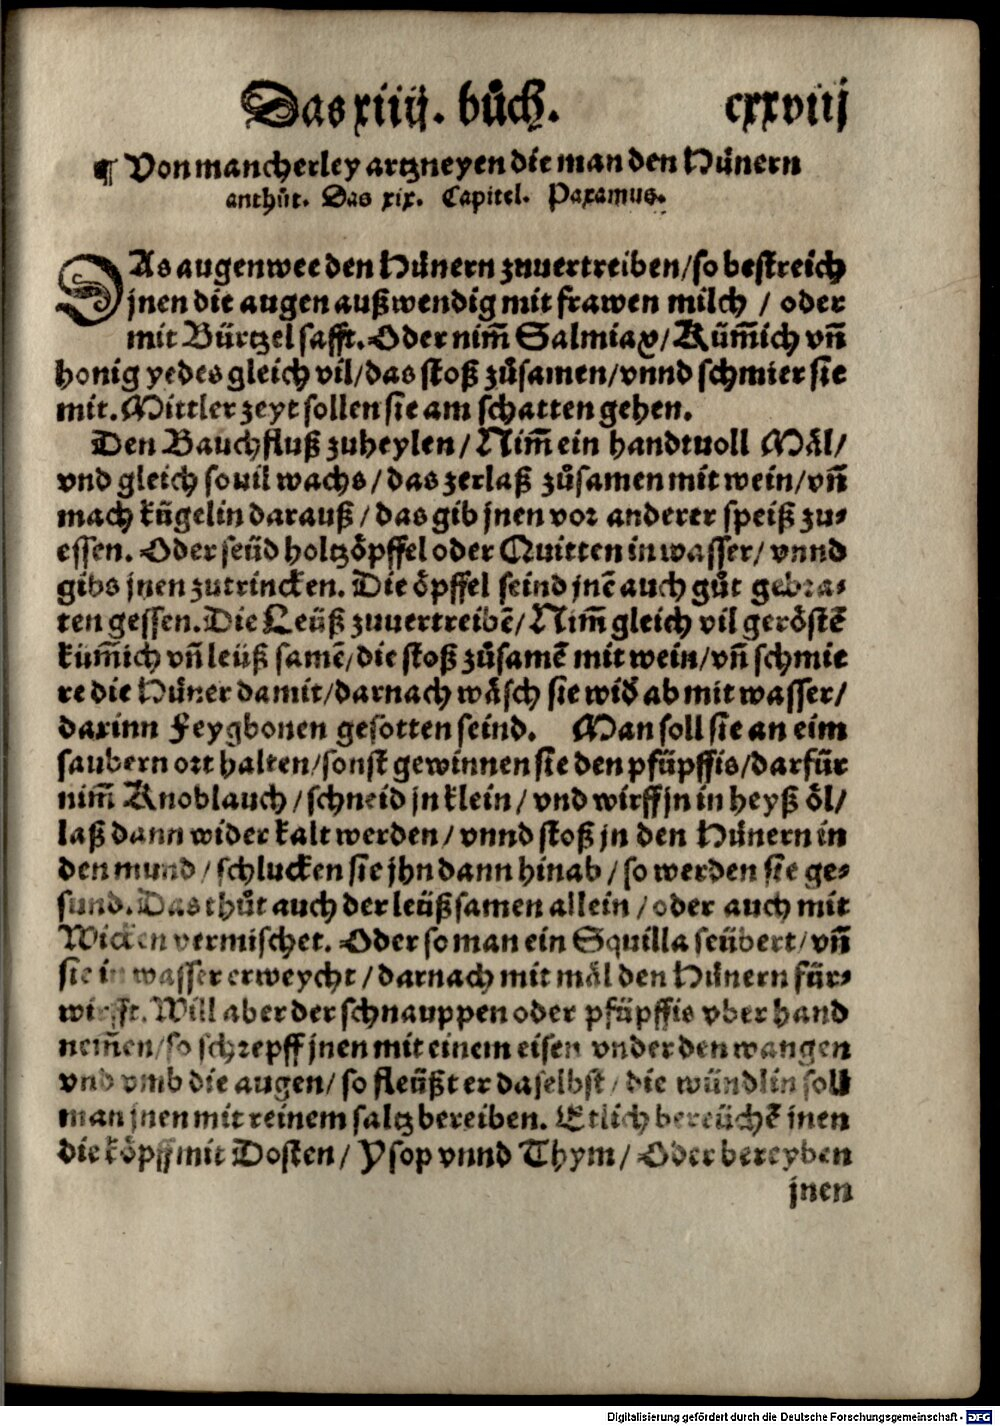 Das xiiij. bůch. cxxviij
¶ Von mancherley artzneyen die man den Hünern
anthůt. Das xix. Capitel. Paxamus.
DAs augenwee den Hünern zuuertreiben/so bestreich
jnen die augen außwendig mit frawen milch / oder
mit Bürtzel safft. Oder nim̃ Salmiax/Küm̃ich vñ
honig yedes gleich vil/das stoß zůsamen/vnnd schmier sie
mit. Mittler zeyt sollen sie am schatten gehen.
Den Bauchfluß zuheylen/Nim̃ ein handtuoll Mäl/
vnd gleich souil wachs/das zerlaß zůsamen mit wein/vñ
mach kügelin darauß/das gib jnen vor anderer speiß zu-
essen. Oder seüd holtzöpffel oder Quitten in wasser/ vnnd
gibs jnen zutrincken. Die öpffel seind jnē auch gůt gebra-
ten gessen. Die Leüß zuuertreibē/Nim̃ gleich vil geröstē
küm̃ich vñ leüß samē/die stoß zůsamē mit wein/vñ schmie
re die Hüner damit/darnach wäsch sie wid̕ ab mit wasser/
darinn Feygbonen gesotten seind. Man soll sie an eim
saubern ort halten/sonst gewinnen sie den pfüpffis/darfür
nim̃ Knoblauch/schneid jn klein/vnd wirff jn in heyß öl/
laß dann wider kalt werden/vnnd stoß jn den Hünern in
den mund/schlucken sie jhn dann hinab/so werden sie ge-
sund. Das thůt auch der leüß samen allein/oder auch mit
Wicken vermischet. Oder so man ein Squilla seübert/vñ
sie in wasser erweycht/darnach mit mäl den Hünern für-
wirfft. Will aber der schnauppen oder pfüpffis vber hand
nem̃en/so schrepff jnen mit einem eisen vnder den wangen
vnd vmb die augen/so fleüßt er daselbst/die wündlin soll
man jnen mit reinem saltz bereiben. Etlich bereüchē jnen
die köpff mit Dosten/Ysop vnnd Thym/Oder bereyben
jnen
Digitalisierung gefördert durch die Deutsche Forschungsgemeinschaft - DFG